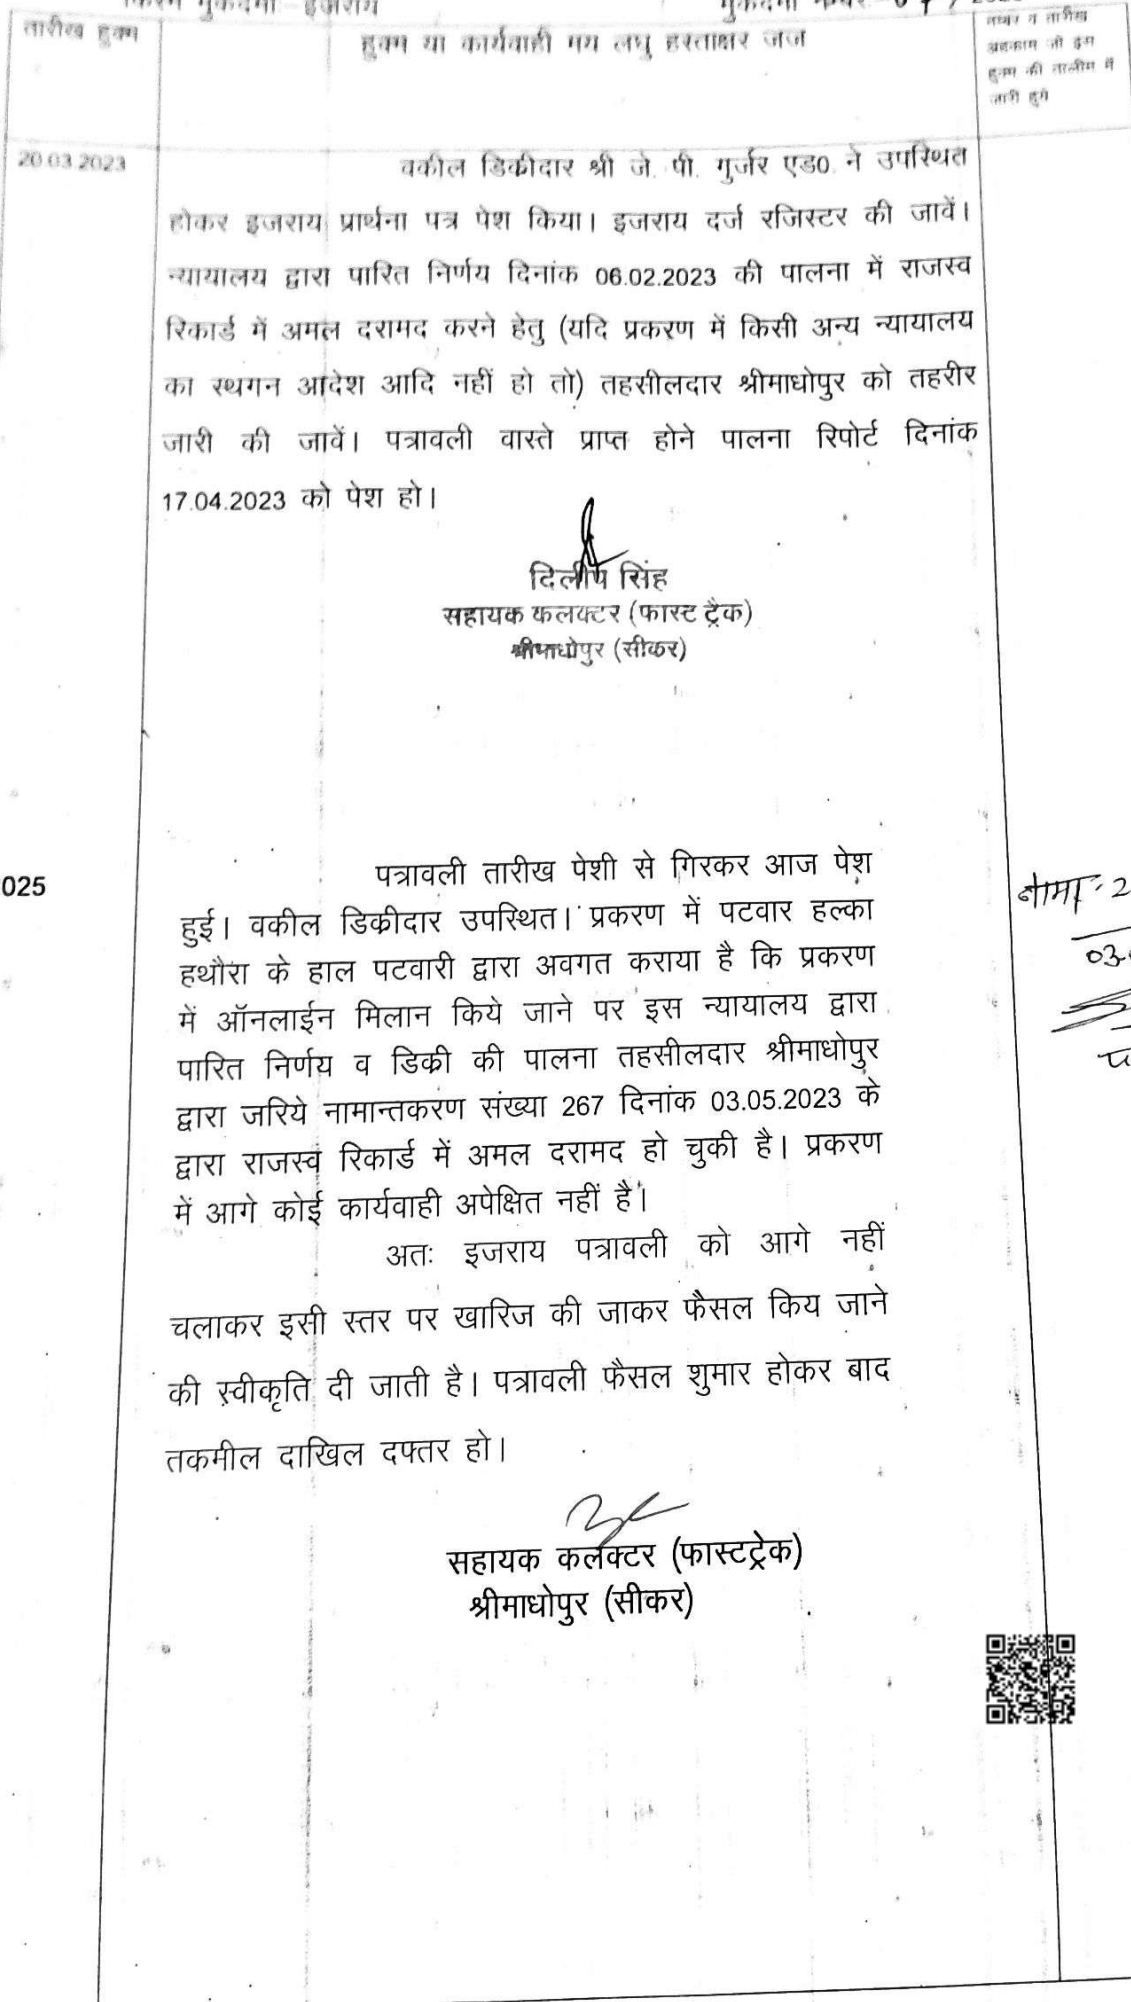 किस्म मुकदमा इजराय
तारीख हुक्म
हुक्म या कार्यवाही मय लघु हस्ताक्षर जज
नम्बर व तारीख
अहकाम जो इस
हुक्म की तालीम में
जारी हुये
20.03.2023
वकील डिक्रीदार श्री जे. पी. गुर्जर एड0 ने उपस्थित
होकर इजराय प्रार्थना पत्र पेश किया। इजराय दर्ज रजिस्टर की जावें।
न्यायालय द्वारा पारित निर्णय दिनांक 06.02.2023 की पालना में राजस्व
रिकार्ड में अमल दरामद करने हेतु (यदि प्रकरण में किसी अन्य न्यायालय
का स्थगन आदेश आदि नहीं हो तो) तहसीलदार श्रीमाधोपुर को तहरीर
जारी की जावें। पत्रावली वास्ते प्राप्त होने पालना रिपोर्ट दिनांक
17.04.2023 को पेश हो।
दिलीप सिंह
सहायक कलक्टर (फास्ट ट्रैक)
श्रीमाधोपुर (सीकर)
025
पत्रावली तारीख पेशी से गिरकर आज पेश
हुई। वकील डिक्रीदार उपस्थित। प्रकरण में पटवार हल्का
हथौरा के हाल पटवारी द्वारा अवगत कराया है कि प्रकरण
में ऑनलाईन मिलान किये जाने पर इस न्यायालय द्वारा
पारित निर्णय व डिक्री की पालना तहसीलदार श्रीमाधोपुर
द्वारा जरिये नामान्तकरण संख्या 267 दिनांक 03.05.2023 के
द्वारा राजस्व रिकार्ड में अमल दरामद हो चुकी है। प्रकरण
में आगे कोई कार्यवाही अपेक्षित नहीं है।
अतः इजराय पत्रावली को आगे नहीं
चलाकर इसी स्तर पर खारिज की जाकर फैसल किय जाने
की स्वीकृति दी जाती है। पत्रावली फैसल शुमार होकर बाद
तकमील दाखिल दफ्तर हो।
सहायक कलक्टर (फास्टट्रेक)
श्रीमाधोपुर (सीकर)